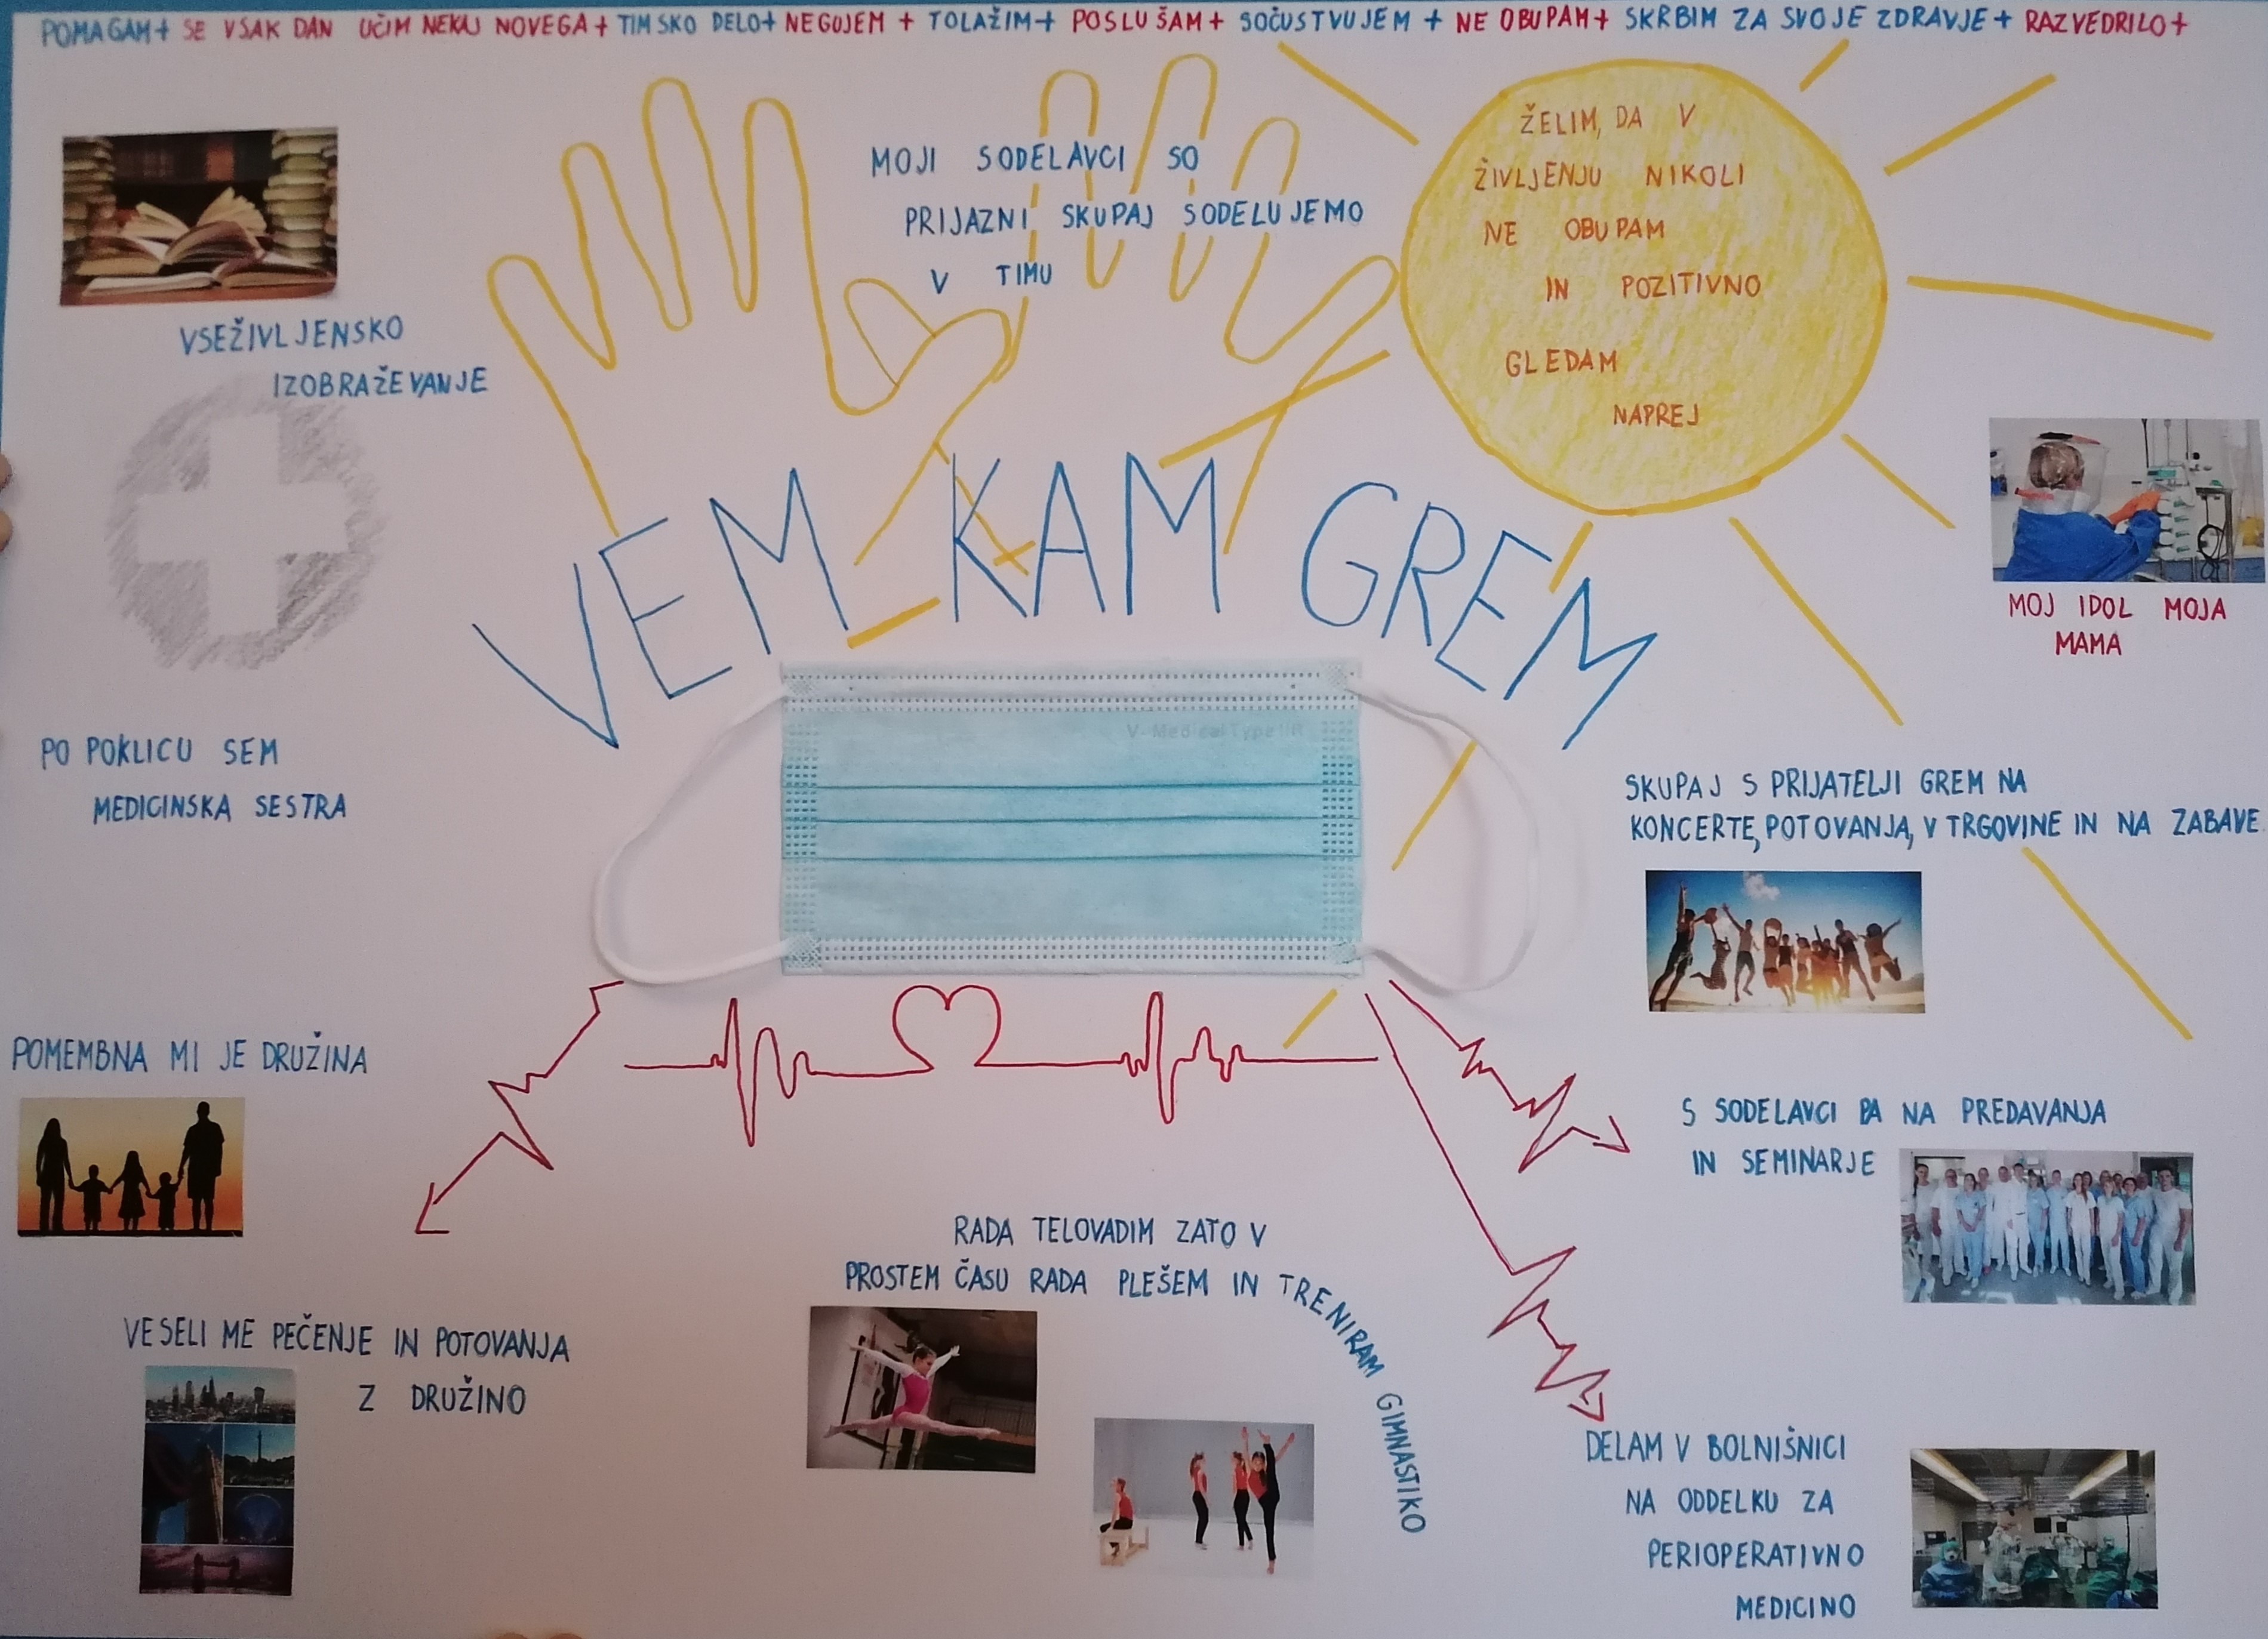 POMAGAM + SE VSAK DAN UČIM NEKAJ NOVEGA + TIMSKO DELO + NEGUJEM + TOLAŽIM + POSLUŠAM + SOČUSTVUJEM + NE OBUPAM + SKRBIM ZA SVOJE ZDRAVJE + RAZVEDRILO +
VSEŽIVLJENSKO
IZOBRAŽEVANJE
MOJI SODELAVCI SO
PRIJAZNI SKUPAJ SODELUJEMO
V TIMU
ŽELIM, DA V
ŽIVLJENJU NIKOLI
NE OBUPAM
IN POZITIVNO
GLEDAM
NAPREJ
VEM KAM GREM
MOJ IDOL MOJA
MAMA
V-Medical Type IIR
PO POKLICU SEM
MEDICINSKA SESTRA
SKUPAJ S PRIJATELJI GREM NA
KONCERTE, POTOVANJA, V TRGOVINE IN NA ZABAVE
POMEMBNA MI JE DRUŽINA
S SODELAVCI PA NA PREDAVANJA
IN SEMINARJE
VESELI ME PEČENJE IN POTOVANJA
Z DRUŽINO
RADA TELOVADIM ZATO V
PROSTEM ČASU RADA PLEŠEM IN TRENIRAM GIMNASTIKO
DELAM V BOLNIŠNICI
NA ODDELKU ZA
PERIOPERATIVNO
MEDICINO